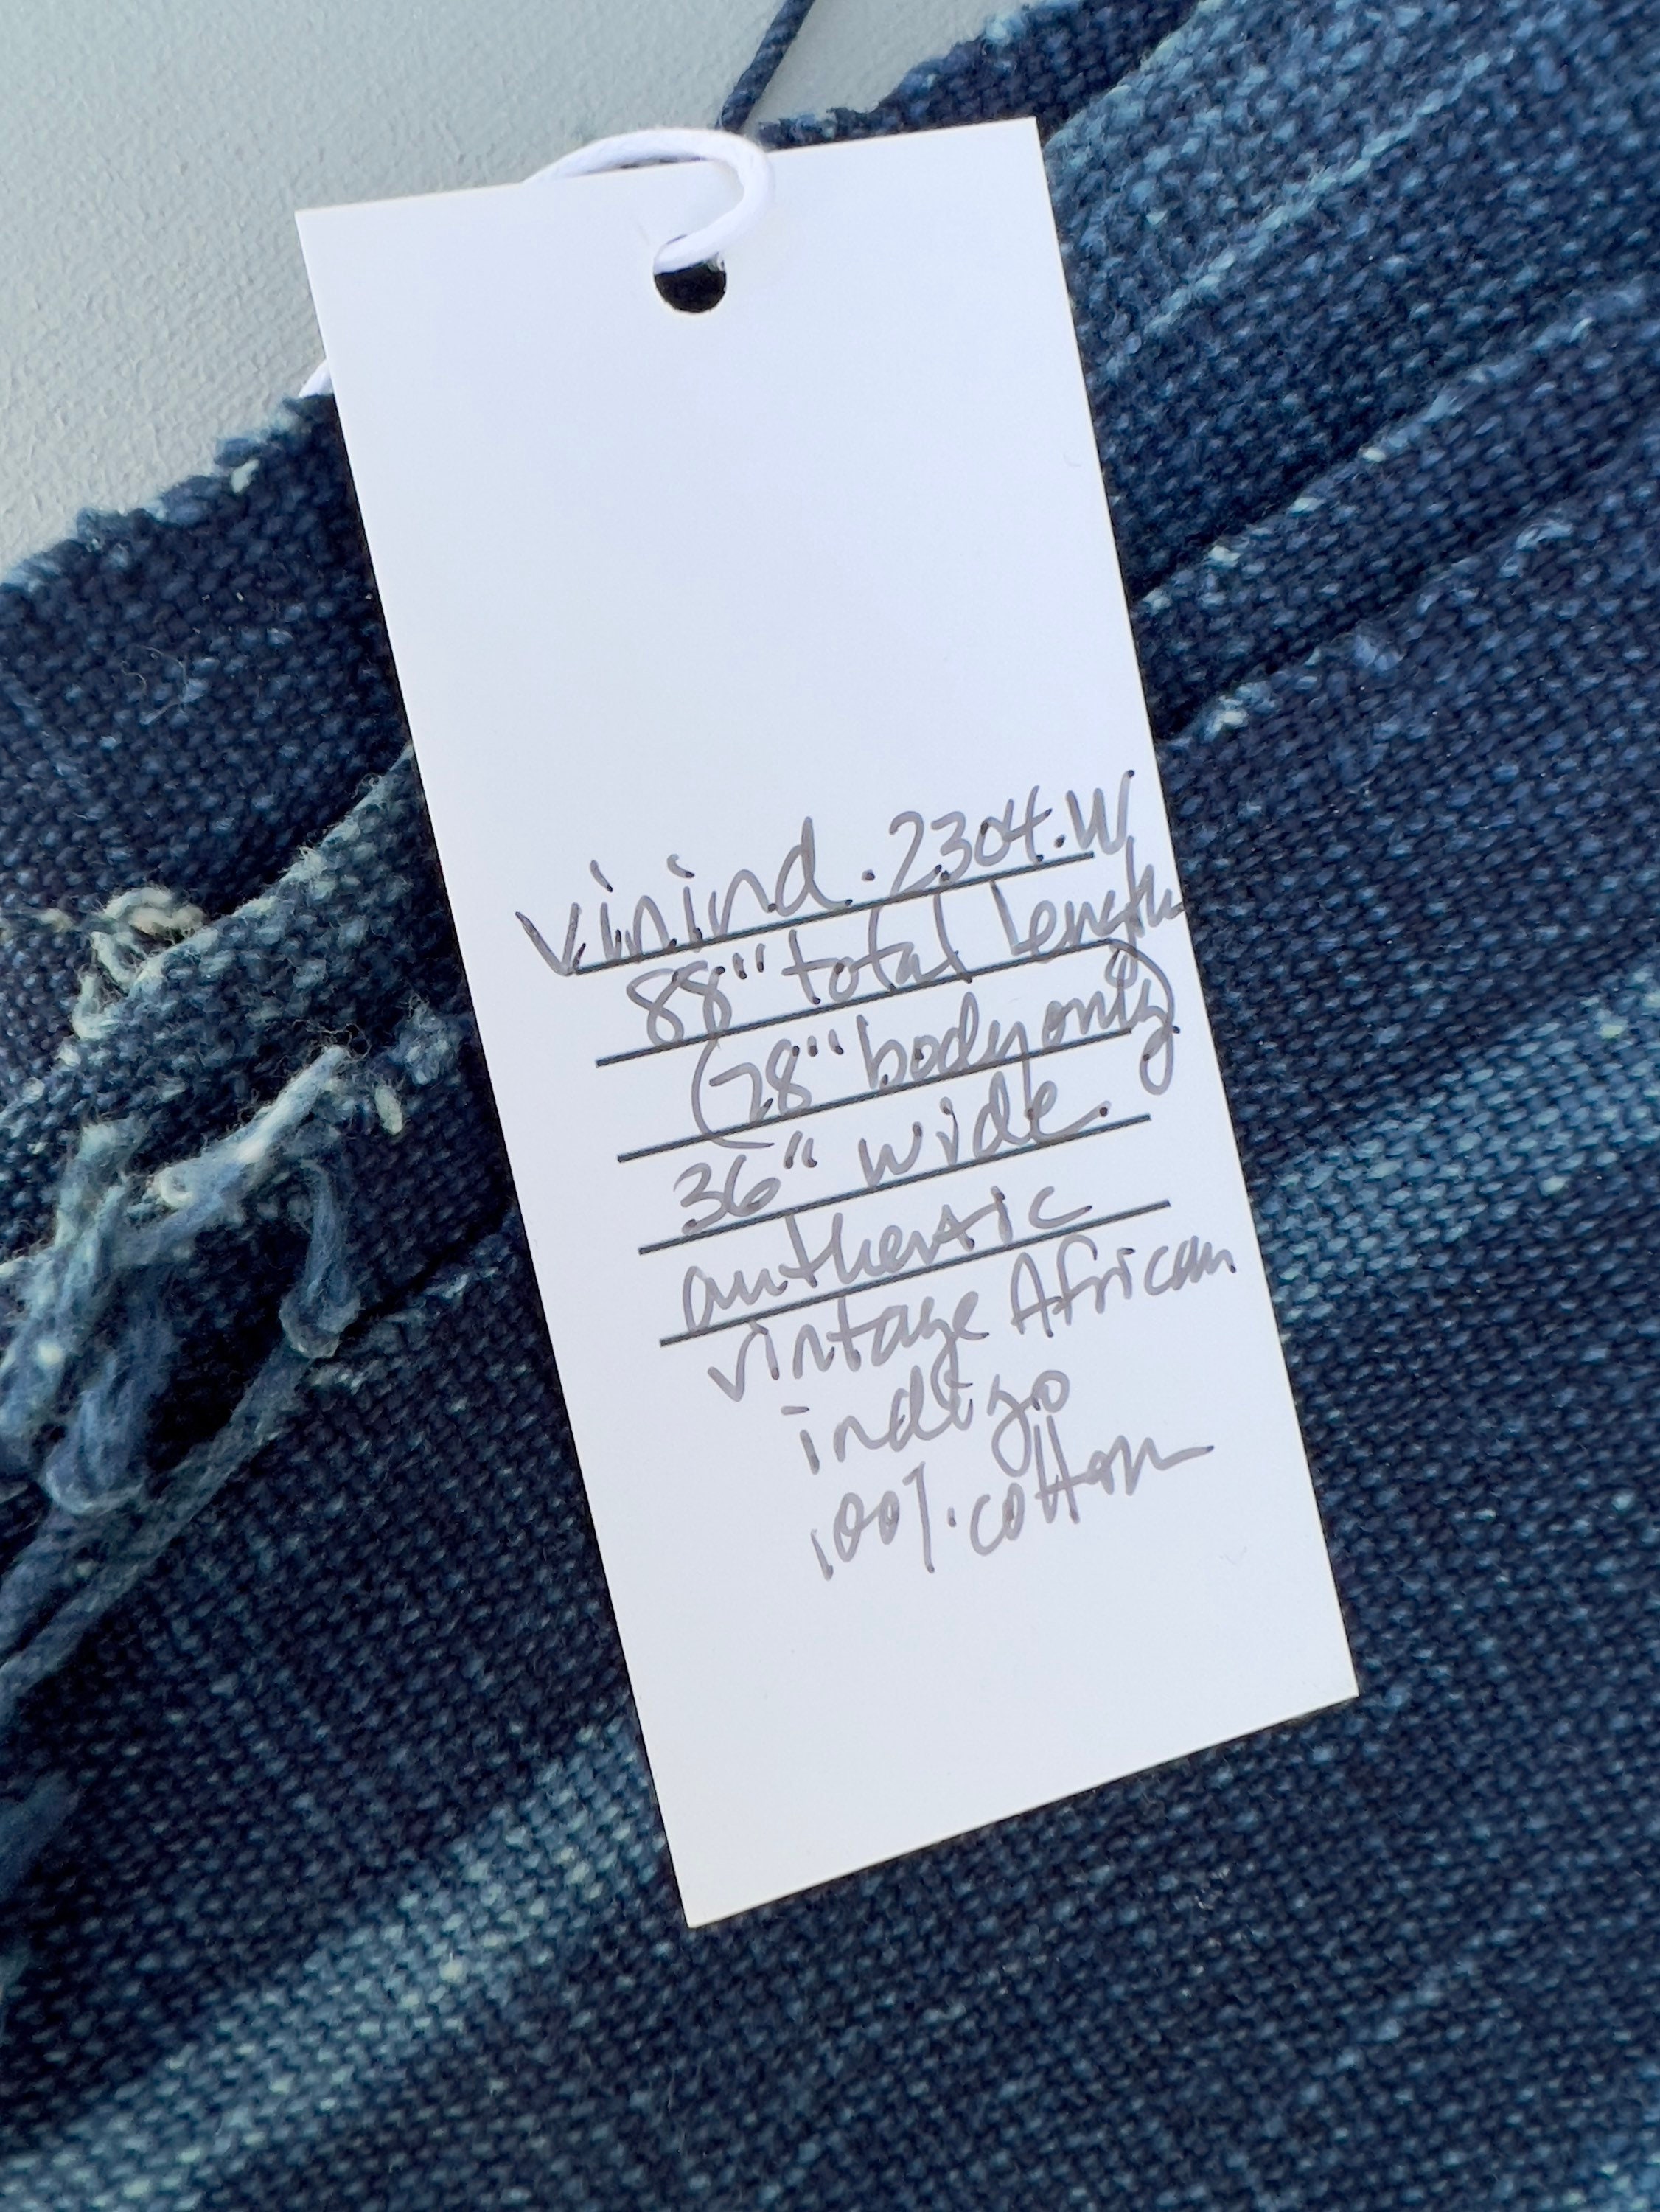 vinind.2304.W
88" total length
(78" body only)
36" wide.
authentic
vintage African
indigo
100% cotton